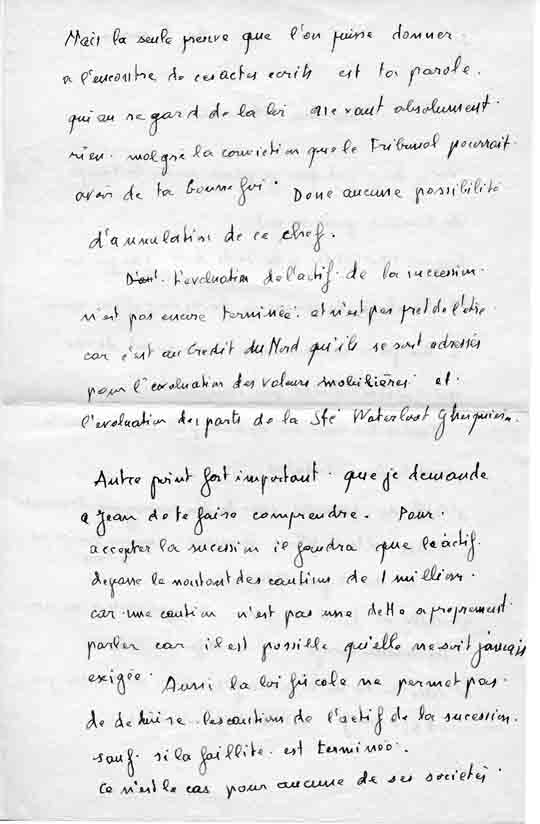 Mais la seule preuve que l'on puisse donner
a l'encontre de ces actes ecrits est ta parole.
qui au regard de la loi ne vaut absolument
rien. malgré la conviction que le Tribunal pourrait
avoir de ta bonne foi. Donc aucune possibilité
d'annulation de ce chef.
L'evaluation de l'actif de la succession
n'est pas encore terminée. et n'est pas pret de l'etre
car c'est au Credit du Nord qu'ils se sont adressés
pour l'evaluation des valeurs mobilières et
l'evaluation des parts de la Sté Waterloot
Autre point fort important. que je demande
a Jean de te faire comprendre. Pour
accepter la sucession il faudra que le actif
depasse le montant des cautions de 1 million.
car une caution n'est pas une dette a proprement
parler car il est possible qu'elle ne soit jamais
exigée. Aussi la loi fiscale ne permet pas
de deduire les cautions de l'actif de la sucession.
sauf si la faillite est terminée.
ce n'est le cas pour aucune de ses societés